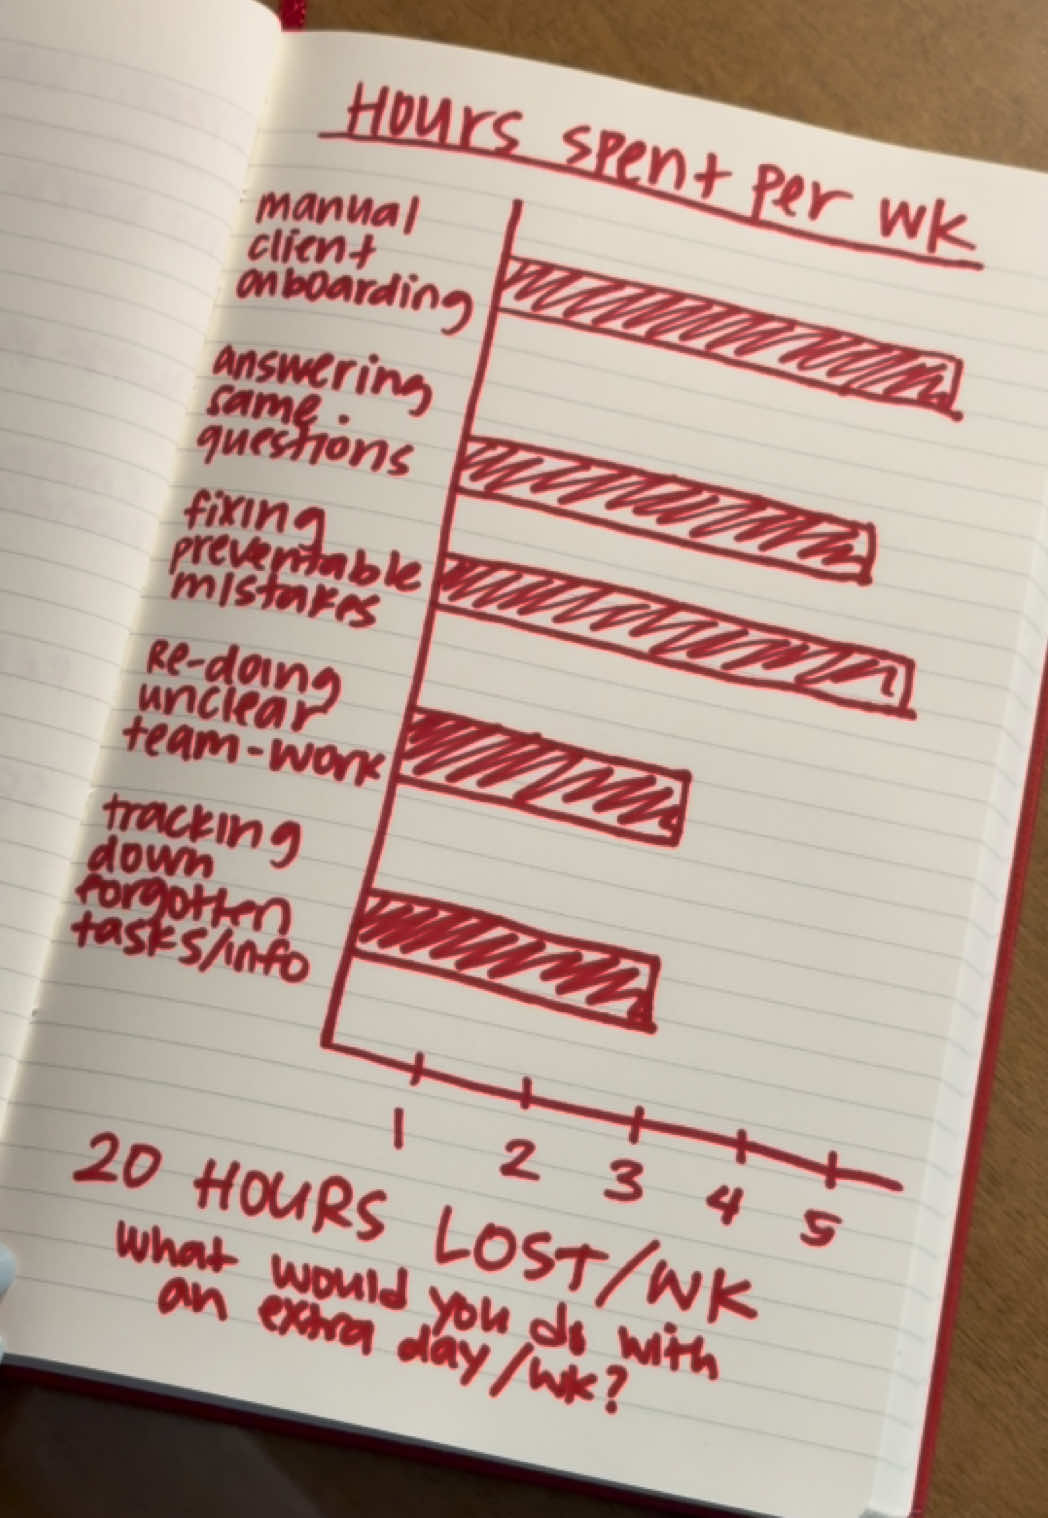 Hours spent per wk
manual
client
onboarding
answering
same
questions
fixing
preventable
mistakes
Re-doing
unclear
team-work
tracking
down
forgotten
tasks/info
1 2 3 4 5
20 HOURS LOST/WK
what would you do with
an extra day/wk?